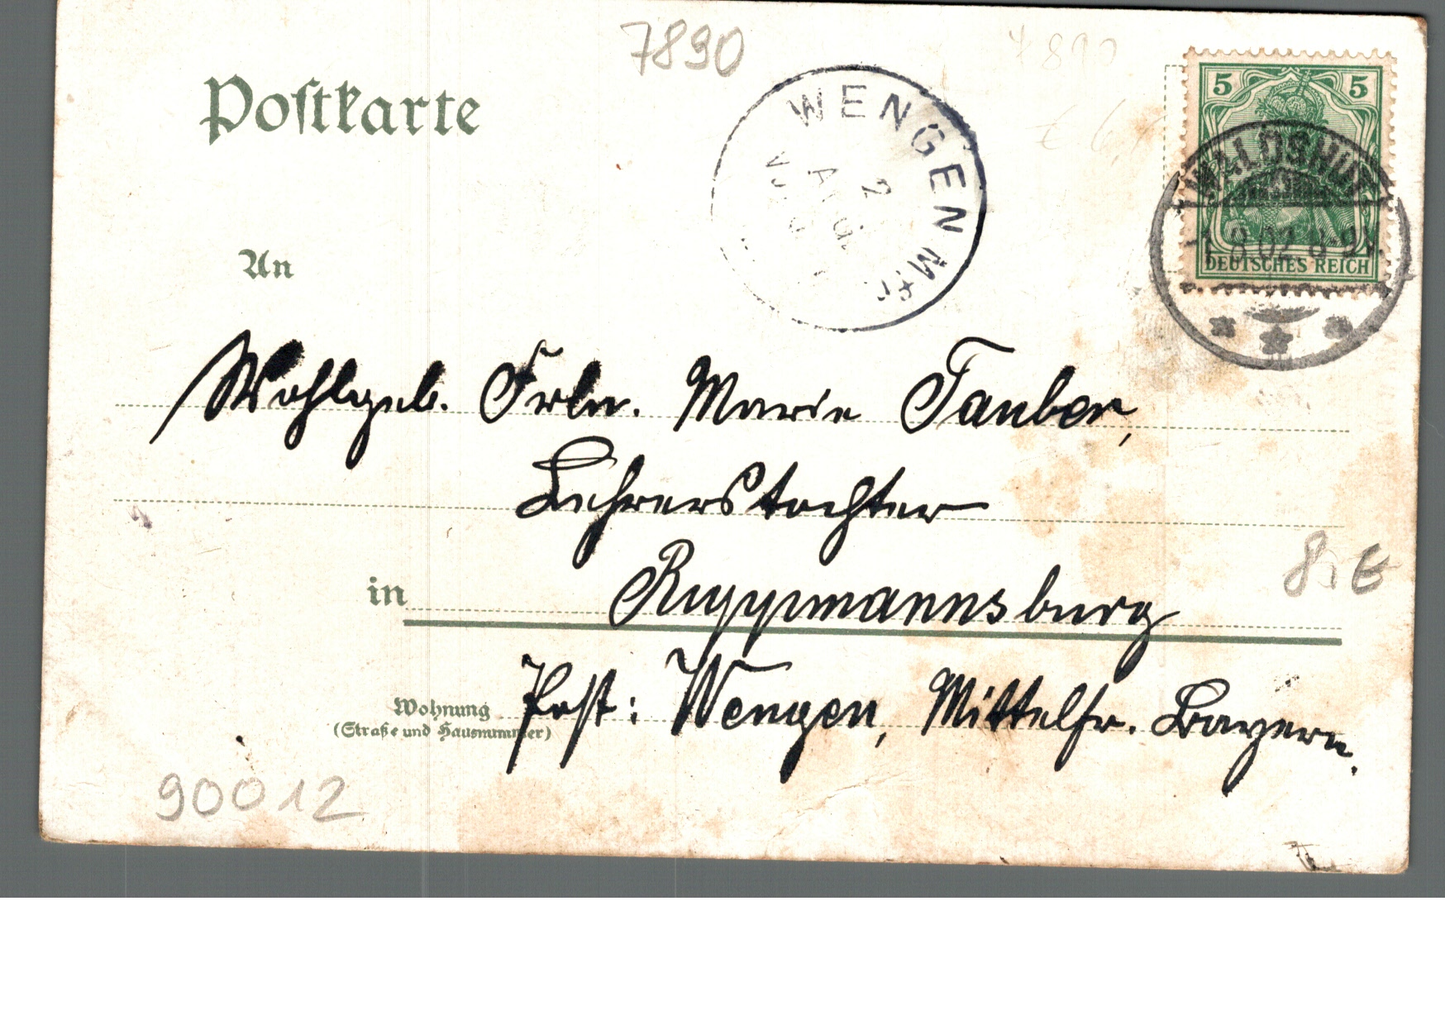 7890
7890
Postkarte
WENGEN Mfr
2
AUG.
VOR
5 5
DEUTSCHES REICH
WALDSHUT
1.8.02.8-9V.
An
Wohlgeb. Frln. Marie Tauber,
Lehrerstochter
in Ruppmannsburg
Wohnung
(Straße und Hausnummer)
Post: Wengen, Mittelfr. Bayern.
8,€
90012